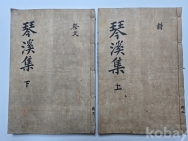 琴溪集
上
琴溪集
下
祭文
kobay